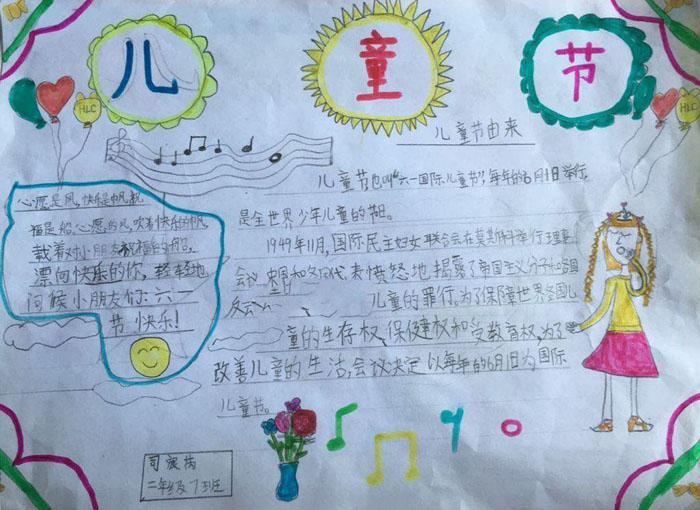 儿 童 节
HLC
HLC
儿童节由来
儿童节也叫“六一国际儿童节”,每年的6月1日举行,
是全世界少年儿童的节日。
1949年11月,国际民主妇女联合会在莫斯科举行理事
会议 中国和各国代表愤怒地揭露了帝国主义分子和各国
反动
儿童的罪行。为了保障世界各国儿
童的生存权、保健权和受教育权,为了
改善儿童的生活,会议决定以每年的6月1日为国际
儿童节。
心愿是风,快乐是帆,祝
福是船。心愿的风,吹着快乐的帆,
载着对小朋友祝福的船,
漂向快乐的你,轻轻地
问候小朋友们:六一
节快乐!
二年级7班